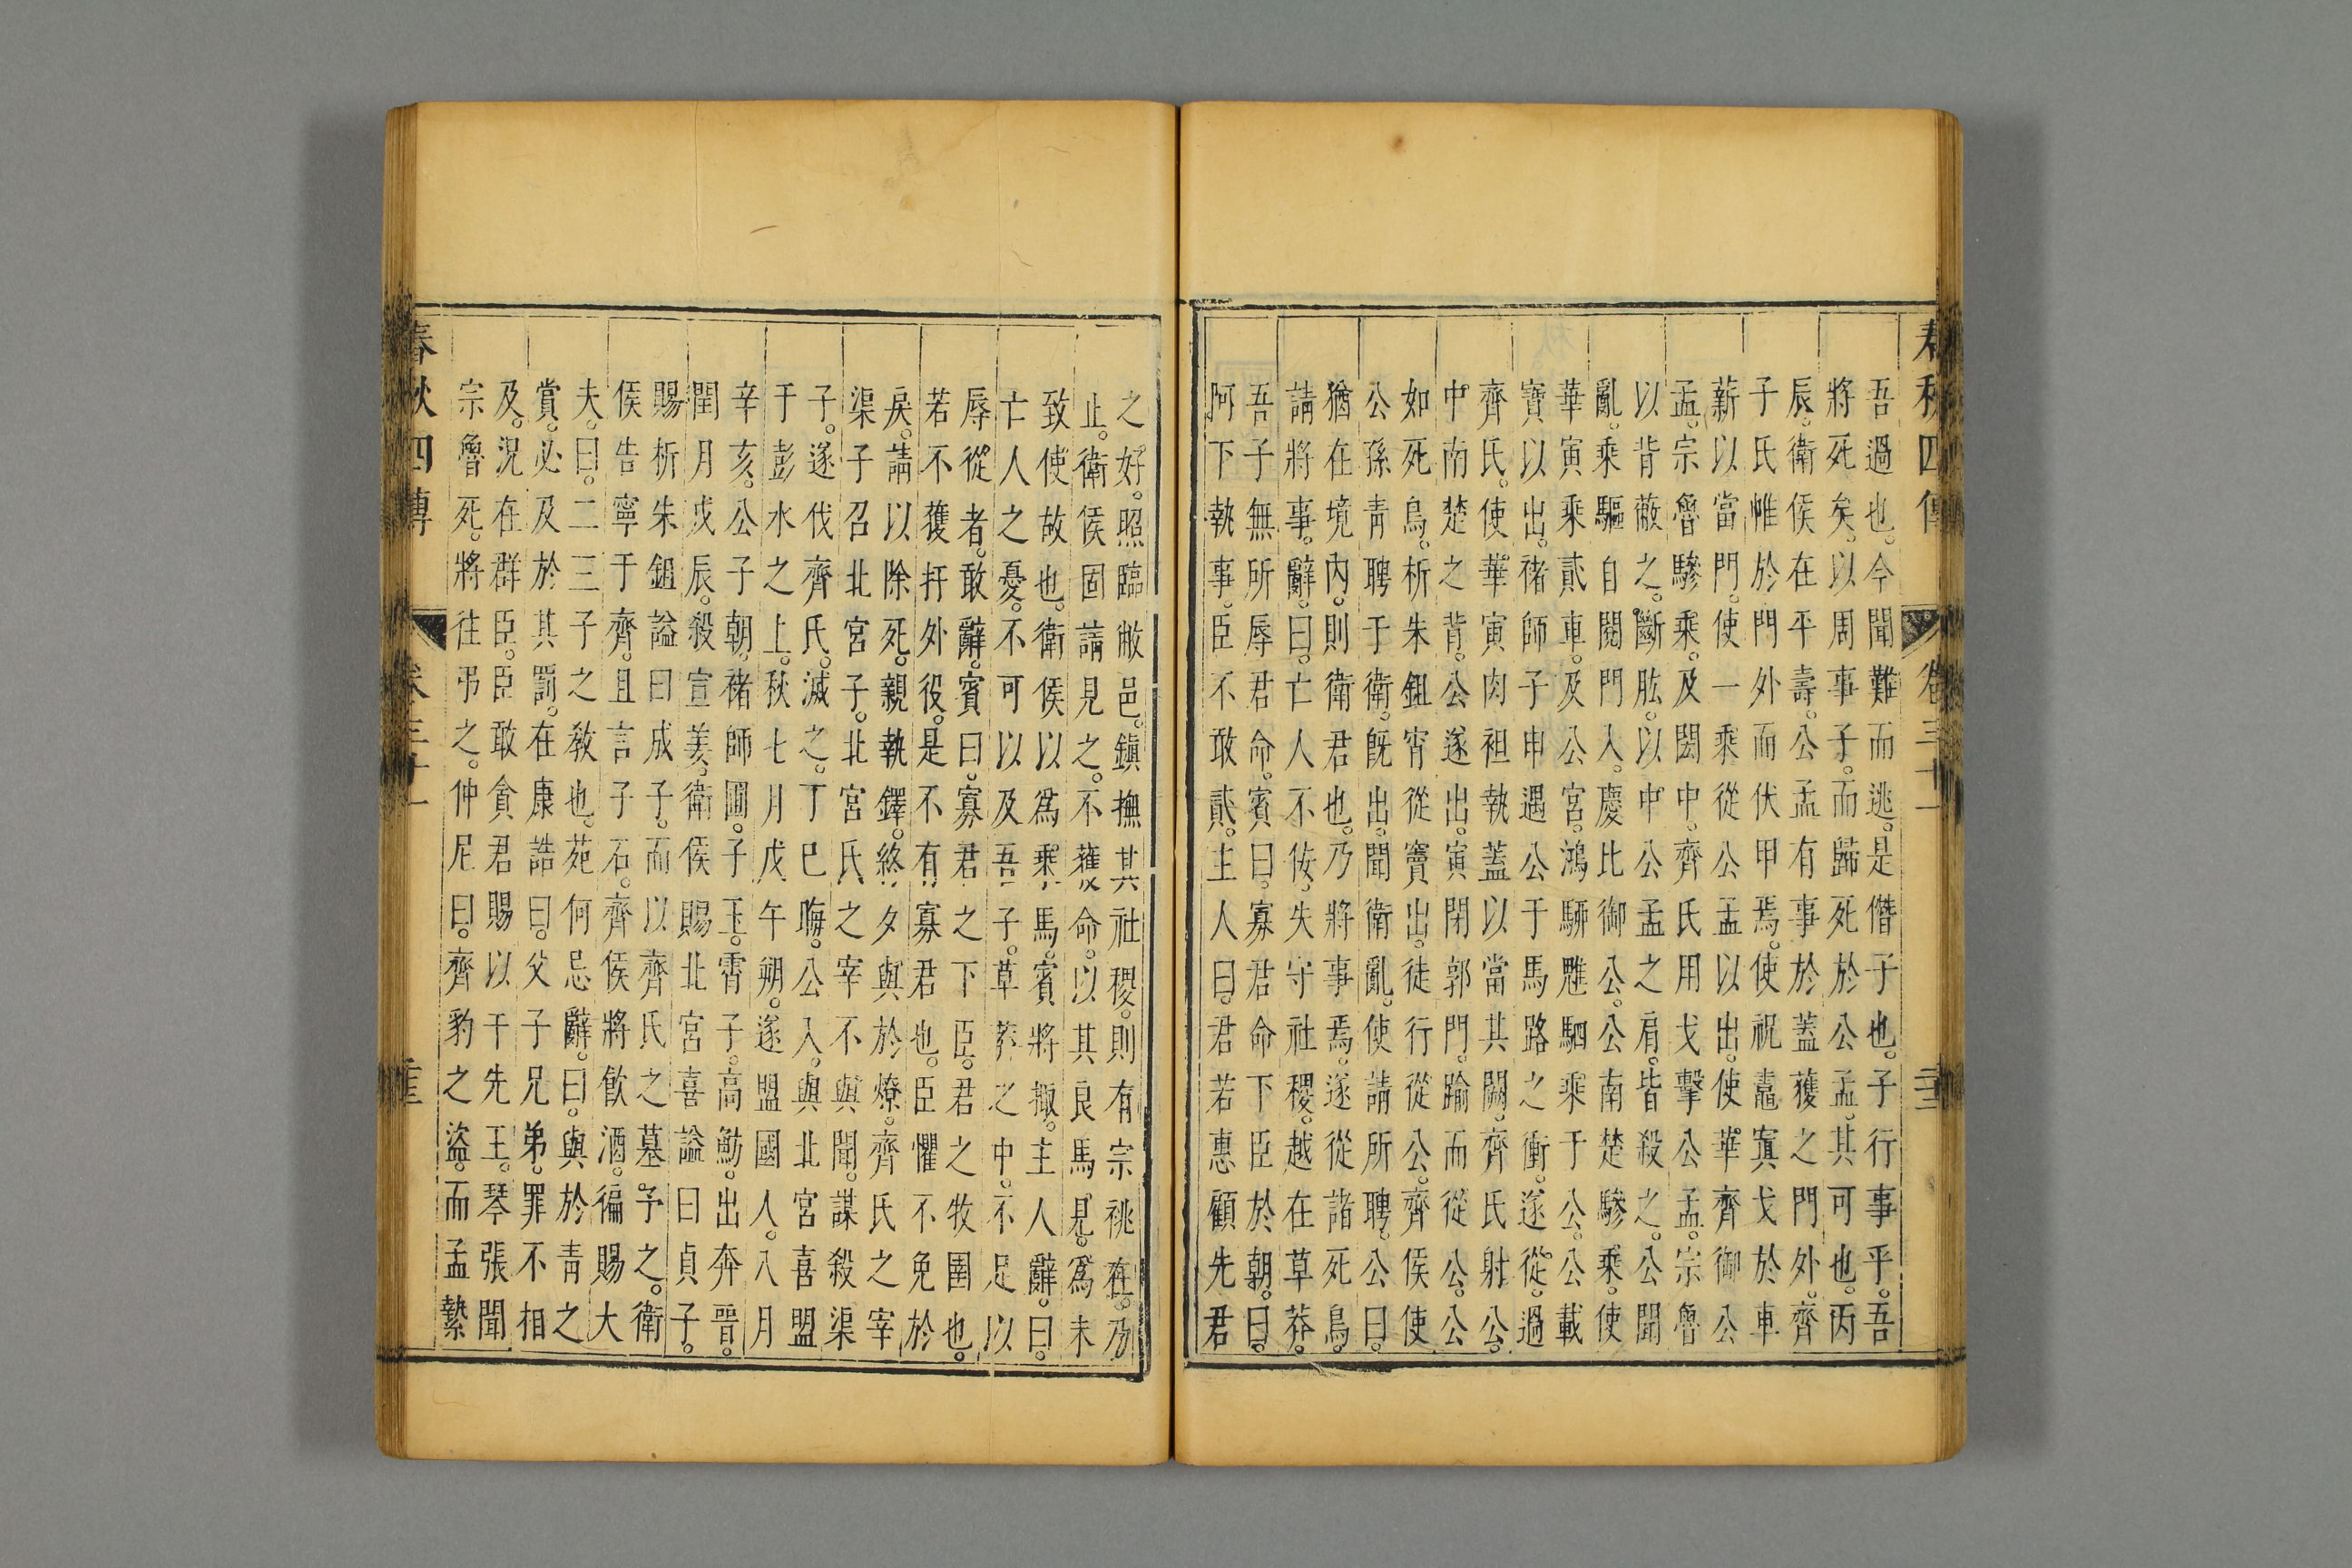 春秋四傳 卷三十一
吾過也。今聞難而逃。是僭子也。子行事乎。吾
將死矣。以周事子。而歸死於公孟。其可也。丙
辰。衛侯在平壽。公孟有事於蓋獲之門外。齊
子氏帷於門外而伏甲焉。使祝鼃寘戈於車
薪以當門。使一乘從公孟以出。使華齊御公
孟。宗魯驂乘。及閎中。齊氏用戈擊公孟。宗魯
以背蔽之。斷肱。以中公孟之肩。皆殺之。公聞
亂。乘驅自閱門入。慶比御公。公南楚驂乘。使
華寅乘貳車。及公宮。鴻駵魋駟乘于公。公載
寶以出。褚師子申遇公于馬路之衢。遂從。過
齊氏。使華寅肉袒執蓋以當其闕。齊氏射公。
中南楚之背。公遂出。寅閉郭門。踰而從公。公
如死鳥。析朱鉏宵從竇出。徒行從公。齊侯使
公孫青聘于衛。旣出。聞衛亂。使請所聘。公曰。
猶在境內。則衛君也。乃將事焉。遂從諸死鳥。
請將事。辭曰。亡人不佞。失守社稷。越在草莽。
吾子無所辱君命。賓曰。寡君命下臣於朝。曰。
阿下執事。臣不敢貳。主人曰。君若惠顧先君
之好。照臨敝邑。鎮撫其社稷。則有宗祧在。乃
止。衛侯固請見之。不獲命。以其良馬見。爲未
致使故也。衛侯以爲乘馬。賓將掫。主人辭曰。
亡人之憂。不可以及吾子。草莽之中。不足以
辱從者。敢辭。賓曰。寡君之下臣。君之牧圉也。
若不獲扞外役。是不有寡君也。臣懼不免於
戾。請以除死。親執鐸。終夕與於燎。齊氏之宰
渠子召北宮子。北宮氏之宰不與聞。謀殺渠
子。遂伐齊氏。滅之。丁巳晦。公入。與北宮喜盟
于彭水之上。秋七月戊午朔。遂盟國人。八月
辛亥。公子朝。褚師圃。子玉霄。子高魴。出奔晉。
閏月戊辰。殺宣姜。衛侯賜北宮喜謚曰貞子。
賜析朱鉏謚曰成子。而以齊氏之墓予之。衛
侯告寧于齊。且言子石。齊侯將飮酒。徧賜大
夫。曰。二三子之敎也。苑何忌辭。曰。與於靑之
賞。必及於其罰。在康誥曰。父子兄弟。罪不相
及。況在群臣。臣敢貪君賜以干先王。琴張聞
宗魯死。將往弔之。仲尼曰。齊豹之盜。而孟縶
春秋四傳